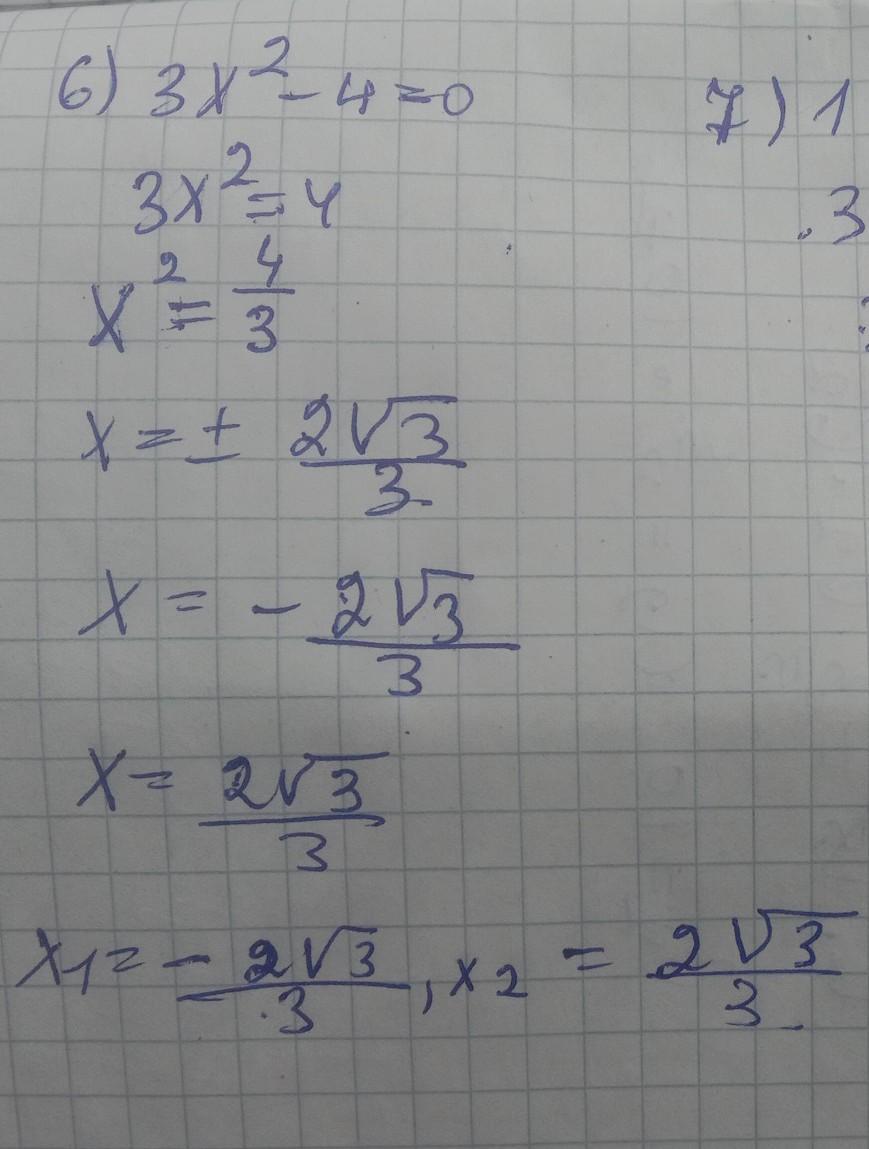 6) 3x² - 4 = 0
3x² = 4
x² = 4/3
x = ± 2√3/3
x = - 2√3/3
x = 2√3/3
x₁ = - 2√3/3, x₂ = 2√3/3
7) 1
.3